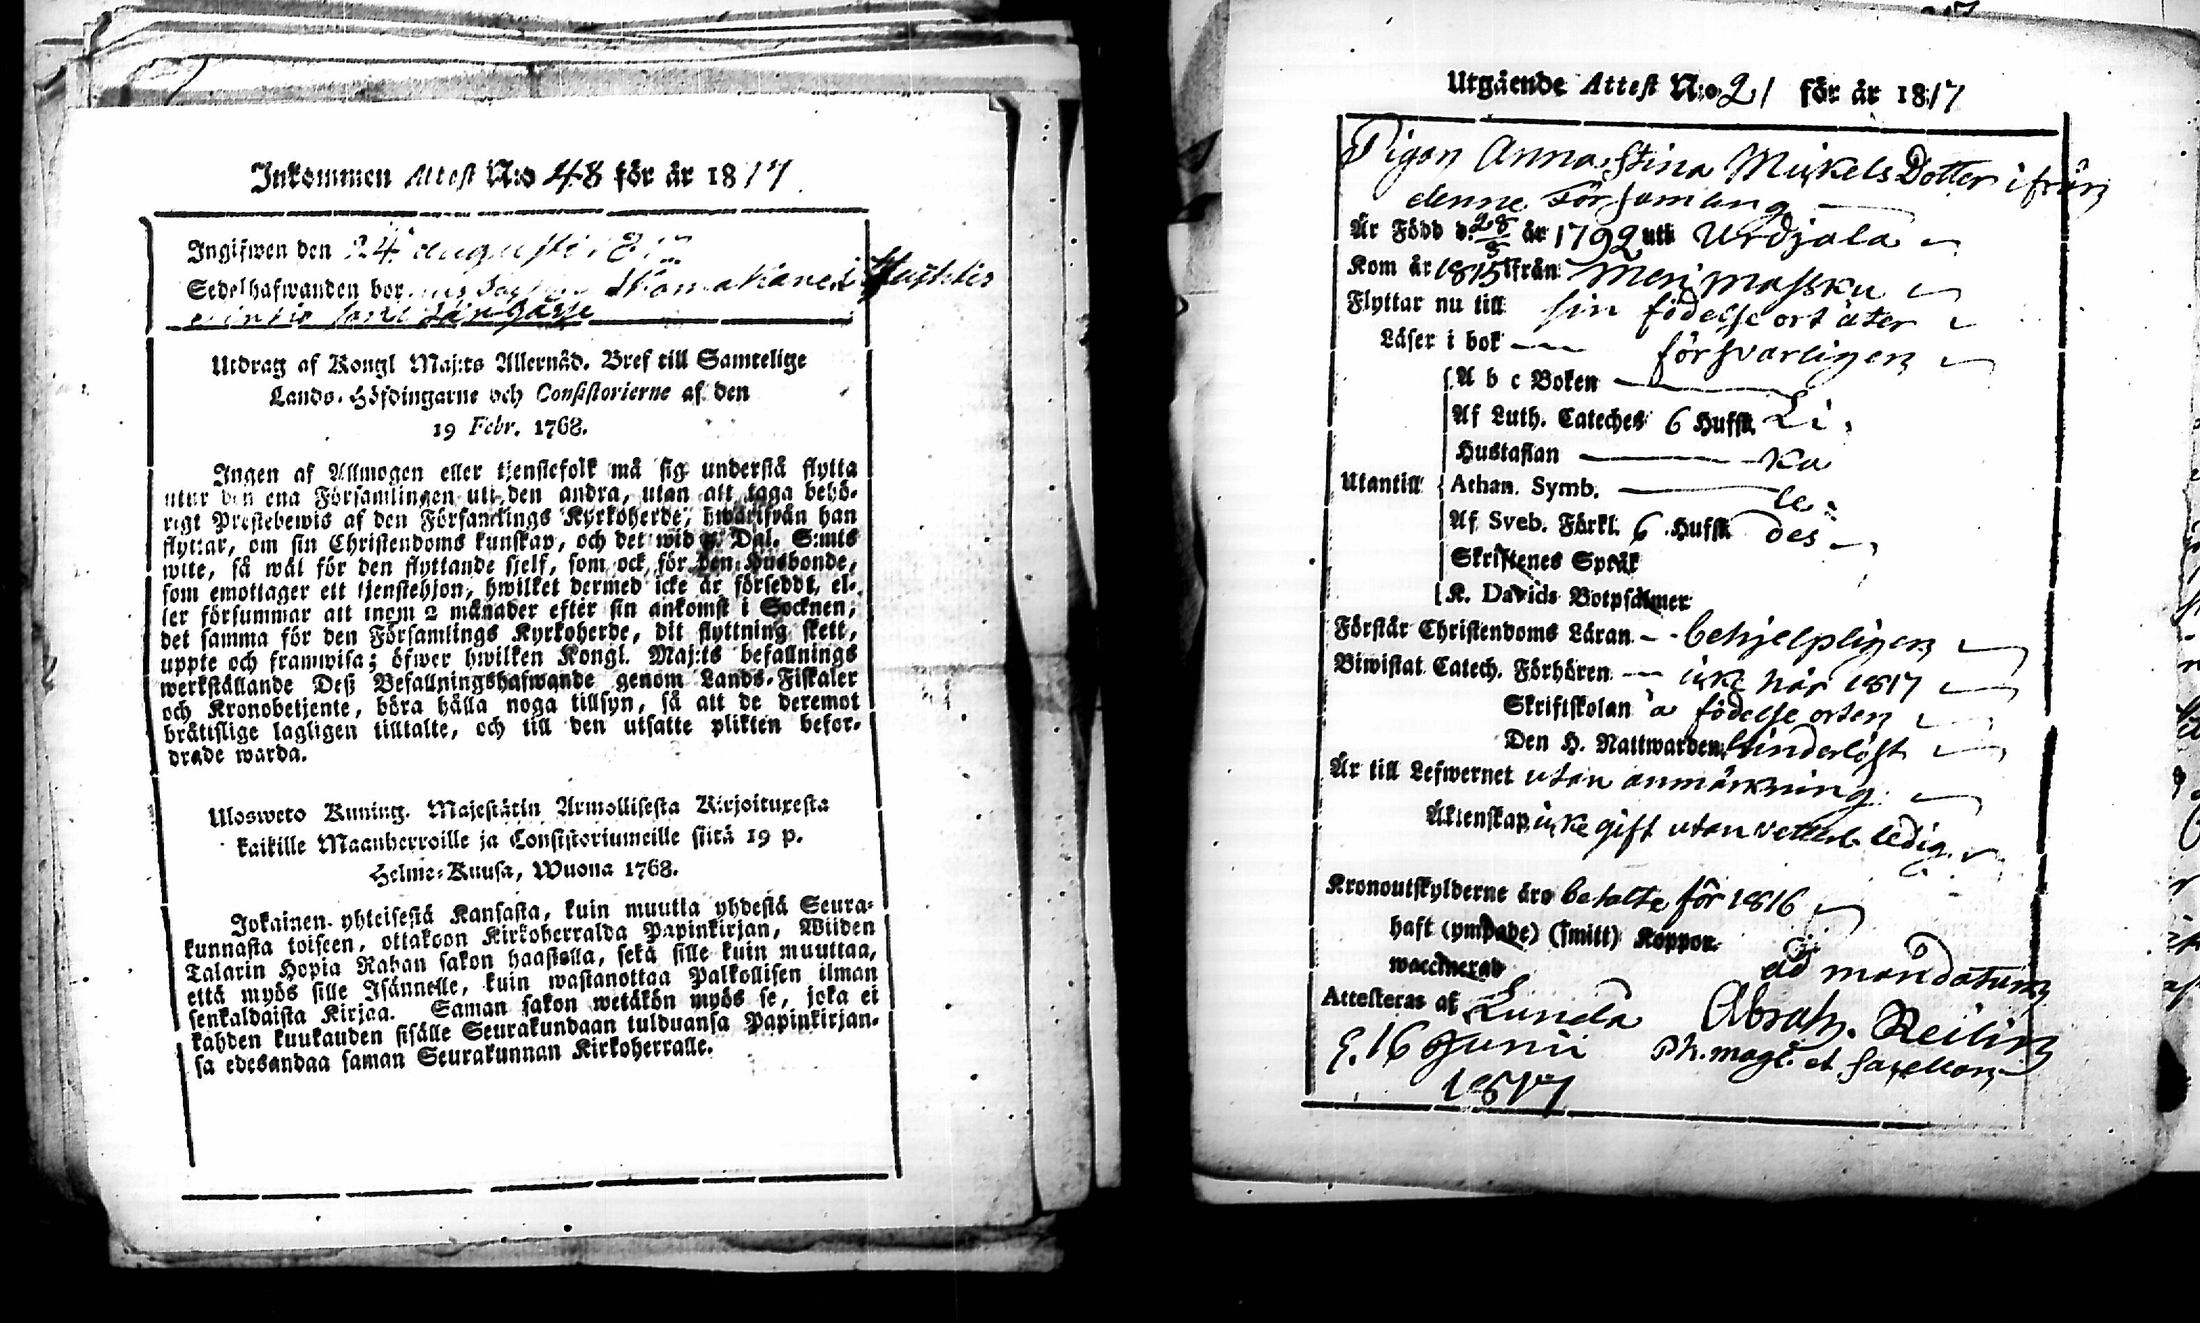 Inkommen Attest N:o 48 för år 1817
Ingifwen den 24 augusti 1817
Sedelhafwanden bor
Utdrag af Kongl Maj:ts Allernåd. Bref till Samtelige
Lands-Höfdingarne och Consistorierne af den
19 Febr. 1768.
Ingen af Allmogen eller tjenstefolk må sig understå flytta
utur den ena Församlingen uti den andra, utan att taga behö-
rigt Prestebewis af den Församlings Kyrkoherde, hwarifrån han
flyttar, om sin Christendoms kunskap, och det wid 5. Dal. S:mts
wite, så wäl för den flyttande sjelf, som ock för den Husbonde,
som emottager ett tjenstehjon, hwilket dermed icke är förseddt, el-
ler försummar att inom 2 månader efter sin ankomst i Socknen,
det samma för den Församlings Kyrkoherde, dit flyttning skett,
uppte och framwisa; öfwer hwilken Kongl. Maj:ts befallnings
werkställande Deß Befallningshafwande genom Lands-Fiskaler
och Kronobetjente, böra hålla noga tillsyn, så att de deremot
bråttslige lagligen tilltalte, och till den utsatte plikten befor-
drade warda.
Ulosweto Kuning. Majestätin Armollisesta Kirjoituxesta
kaikille Maanherroille ja Consistoriumeille siitä 19 p.
Helme-Kuusa, Wuona 1768.
Jokainen yhteisestä Kansasta, kuin muutta yhdestä Seura-
kunnasta toiseen, ottakoon Kirkoherralda Papinkirjan, Wiiden
Talarin Hopia Rahan sakon haastolla, sekä sille kuin muuttaa,
että myös sille Isännelle, kuin wastanottaa Palkollisen ilman
senkaldaista Kirjaa. Saman sakon wetäkön myös se, joka ei
kahden kuukauden sisälle Seurakundaan tulduansa Papinkirjan-
sa edesandaa saman Seurakunnan Kirkoherralle.
Utgående Attest N:o 21 för år 1817
Pigan Anna Stina Mickels Dotter ifrån
denne Församling
Är Född d. 28/8 år 1792 uti Urdjala
Kom år 1815 ifrån Merimasku
Flyttar nu till sin födelse ort åter
Läser i bok försvarligen
A b c Boken
Af Luth. Cateches 6 Huffst. Li
Hustaflan ka
Utantill Athan. Symb. le
Af Sveb. Förkl. 6 Hufst. des
Skriftenes Språk
K. Davids Botpsalmer
Förstår Christendoms Läran behjelpligen
Biwistat Catech. Förhören icke här 1817
Skriftskolan å födelse orten
Den H. Nattwarden hinderlöst
Är till Lefwernet utan anmärkning
Äktenskap icke gift utan ledig
Kronoutskylderne äro betalte för 1816
haft (ympade) (smitt) Koppor
waccinerad
Attesteras af Lunda ad mandatum
d. 16 Junii Abrah. Reilin
1817 Ph. mag. et Sacellan